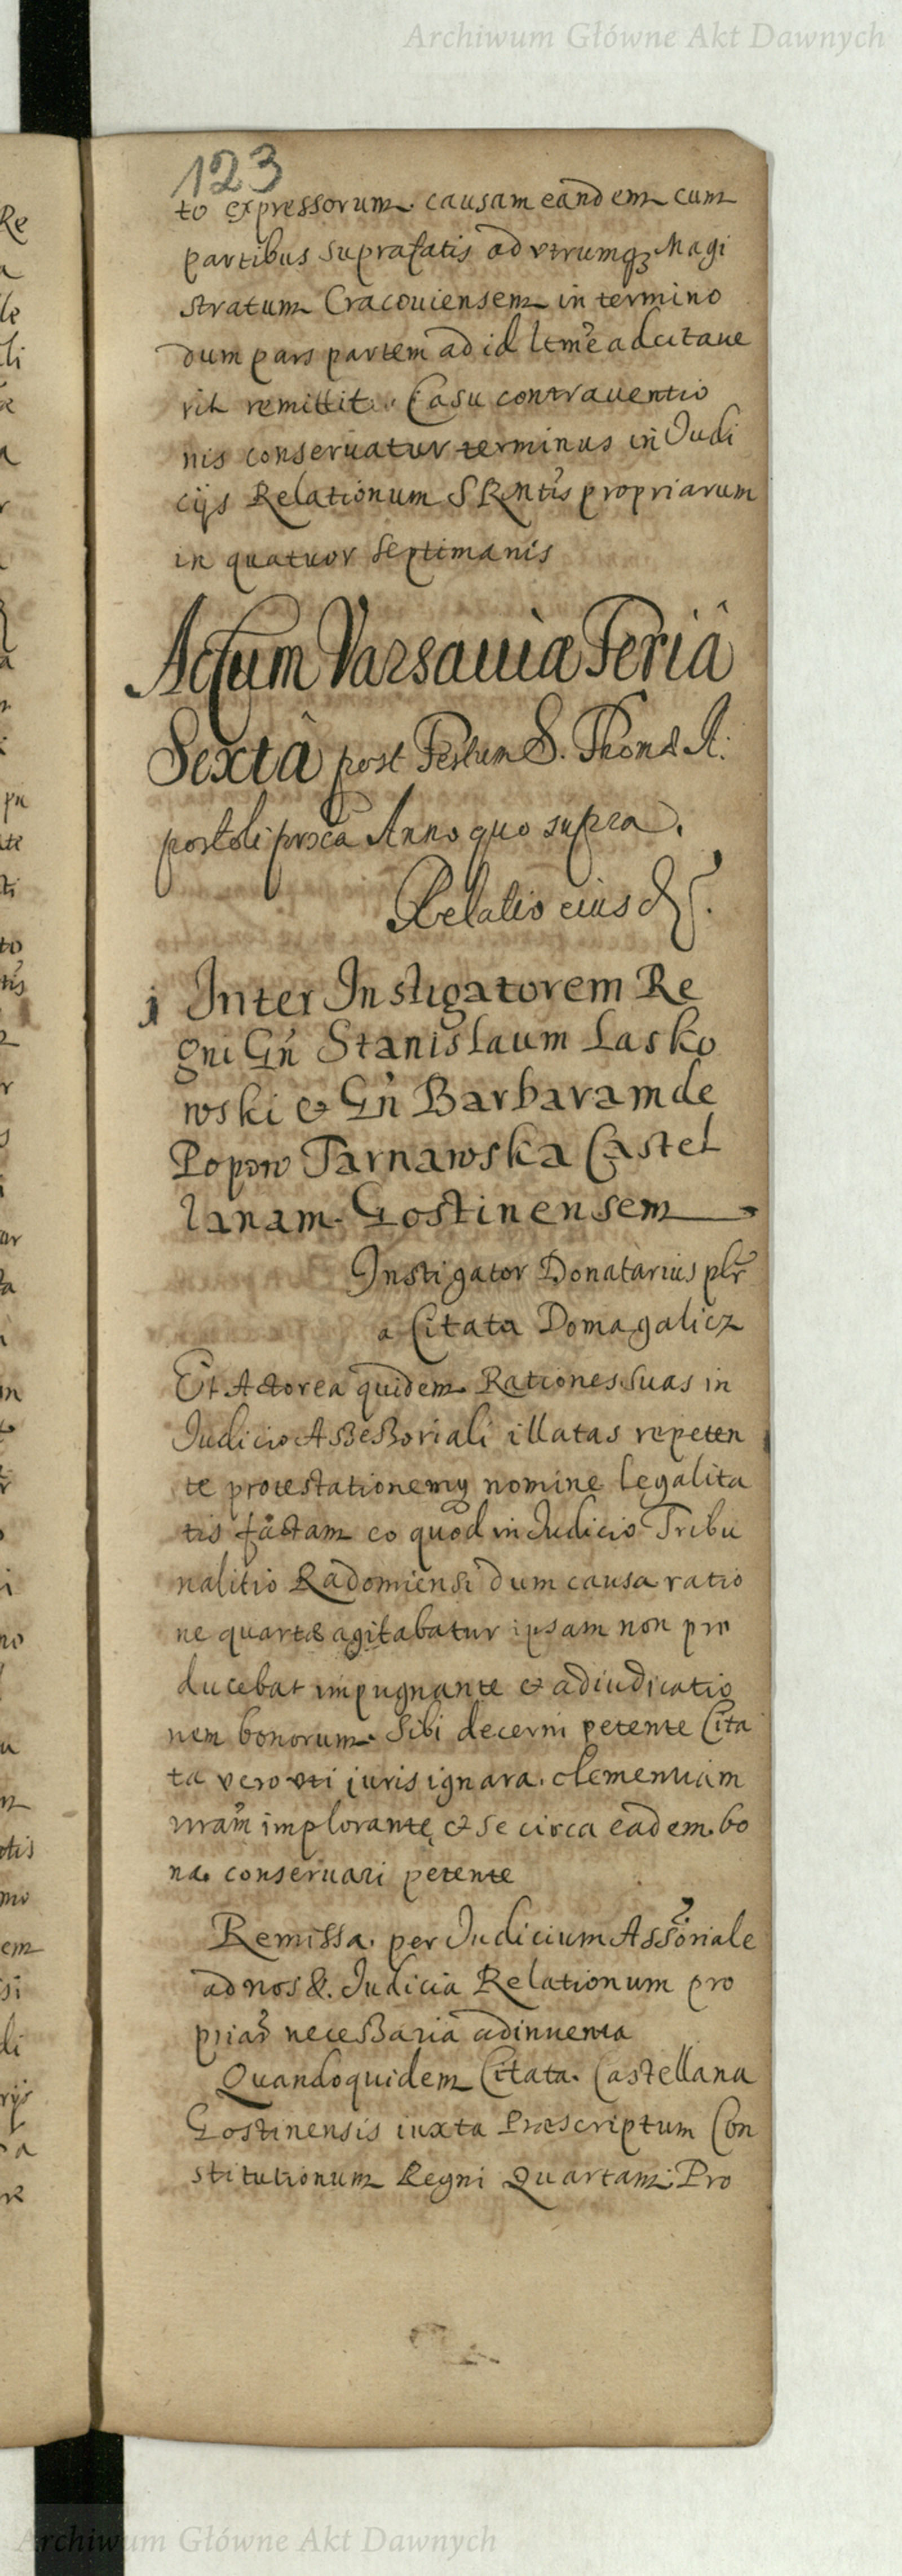 Archiwum Główne Akt Dawnych
123
to expressorum causam eandem cum
partibus suprafatis ad vtrumqз Magi
stratum Cracouiensem in termino
dum pars partem ad id ltme adcitaue
rit remittit. Casu contrauentio
nis conseruatur terminus in Judi
cijs Relationum SRMtis propriarum
in quatuor septimanis
Actum Varsauia Feria
Sexta post Festum S. Thomæ A:
postoli Anno quo supra.
Relatio eius &.
1 Inter Instigatorem Re
gni Gn Stanislaum Lasko
wski & Gn Barbaram de
Popow Tarnawska Castel
lanam Gostinensem
Instigator Donatarius plr
a Citata Domagalicz
Et Actorea quidem Rationes suas in
Judicio Assessoriali illatas repeten
te protestationemq nomine legalita
tis factam eo quod in Judicio Tribu
nalitio Radomiensi dum causa ratio
ne quartæ agitabatur ipsam non pro
ducebat impugnante & adiudicatio
nem bonorum sibi decerni petente Cita
ta vero vti juris ignara clementiam
nram implorante & se circa eadem bo
na conseruari petente
Remissa per Judicium Assoriale
ad nos &. Judicia Relationum pro
prias necessaria adinuenta
Quandoquidem Citata Castellana
Gostinensis iuxta Præscriptum Con
stitutionum Regni Quartam Pro
Archiwum Główne Akt Dawnych